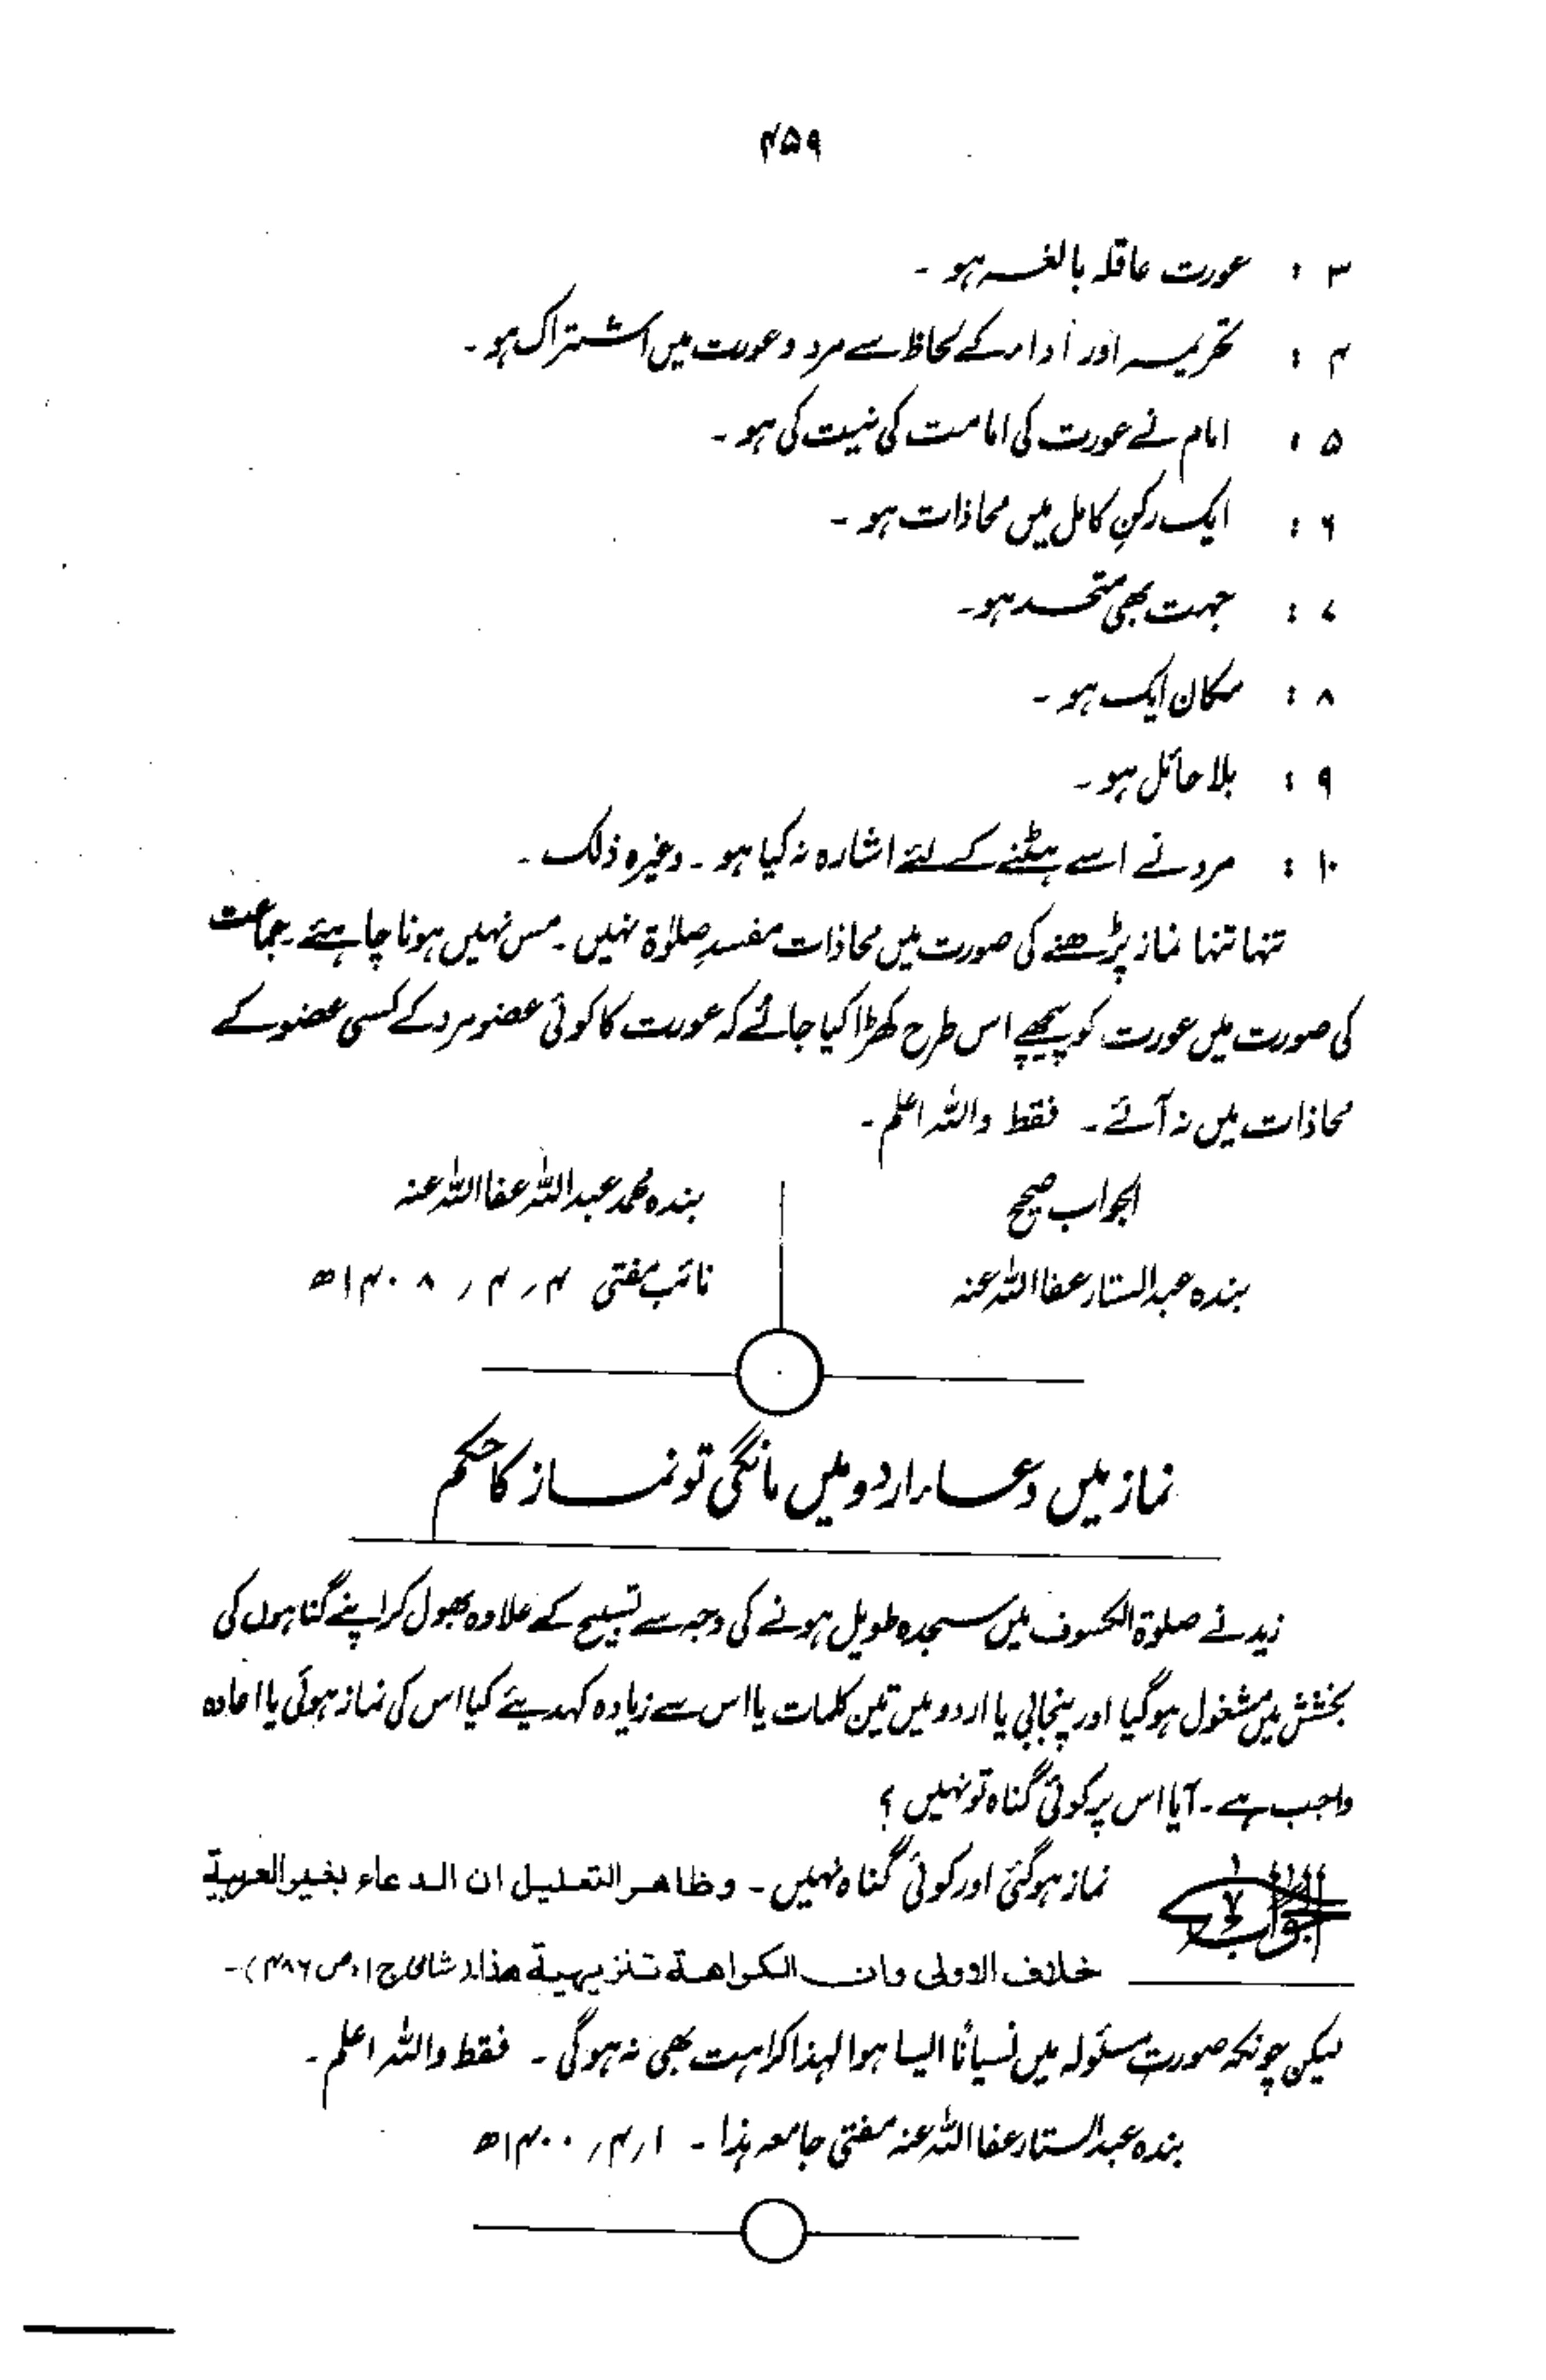 ۴۵۹
۳ : عورت عاقلہ بالغہ ہو ۔
۴ : تحریمہ اور اداء کے لحاظ سے مرد و عورت میں اشتراک ہو ۔
۵ : امام نے عورت کی امامت کی نیت کی ہو ۔
۶ : ایک رکنِ کامل میں محاذات ہو ۔
۷ : جہت بھی متحد ہو ۔
۸ : مکان ایک ہو ۔
۹ : بلا حائل ہو ۔
۱۰ : مرد نے اسے ہٹنے کے لئے اشارہ نہ کیا ہو ۔ وغیرہ ذلک ۔
تنہا تنہا نماز پڑھنے کی صورت میں محاذات مفسدِ صلوٰۃ نہیں ۔ مس نہیں ہونا چاہئے ۔ جماعت
کی صورت میں عورت کو پیچھے اس طرح کھڑا کیا جائے کہ عورت کا کوئی عضو مرد کے کسی عضو کے
محاذات میں نہ آئے ۔ فقط واللہ اعلم ۔
الجواب صحیح
بندہ عبدالستار عفا اللہ عنہ
بندہ محمد عبداللہ عفا اللہ عنہ
نائب مفتی ۴ ر ۴ ر ۱۴۰۸ھ
نماز میں دعاء اردو میں مانگی تو نماز کا حکم
زید نے صلوٰۃ الکسوف میں سجدہ طویل ہونے کی وجہ سے تسبیح کے علاوہ بھول کر اپنے گناہوں کی
بخشش میں مشغول ہوگیا اور پنجابی یا اردو میں تین کلمات یا اس سے زیادہ کہدیئے کیا اس کی نماز ہوئی یا اعادہ
واجب ہے ۔ آیا اس پر کوئی گناہ تو نہیں ؟
الجواب نماز ہوگئی اور کوئی گناہ نہیں ۔ وظاهر التعليل ان الدعاء بغير العربية
خلاف الاولى وان الكراهة تنزيهية هذا (د شامی ج۱ ص ۴۸۶) ۔
لیکن چونکہ صورتِ مسئولہ میں نسیاناً ایسا ہوا لہذا کراہت بھی نہ ہوگی ۔ فقط واللہ اعلم ۔
بندہ عبدالستار عفا اللہ عنہ مفتی جامعہ ہذا ۔ ۱ ر ۴ ر ۱۴۰۰ھ